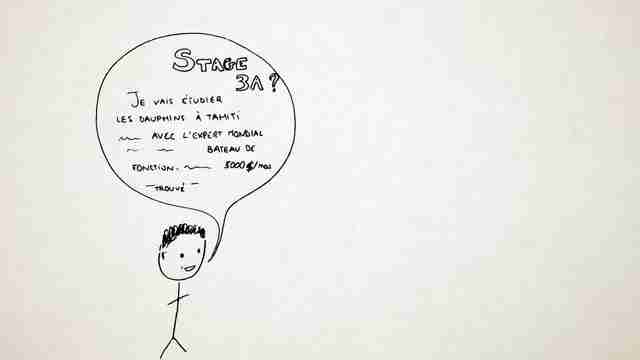 STAGE
3A ?
JE VAIS ÉTUDIER
LES DAUPHINS À TAHITI
AVEC L'EXPERT MONDIAL
BATEAU DE
FONCTION. 5000 $/mois
TROUVÉ